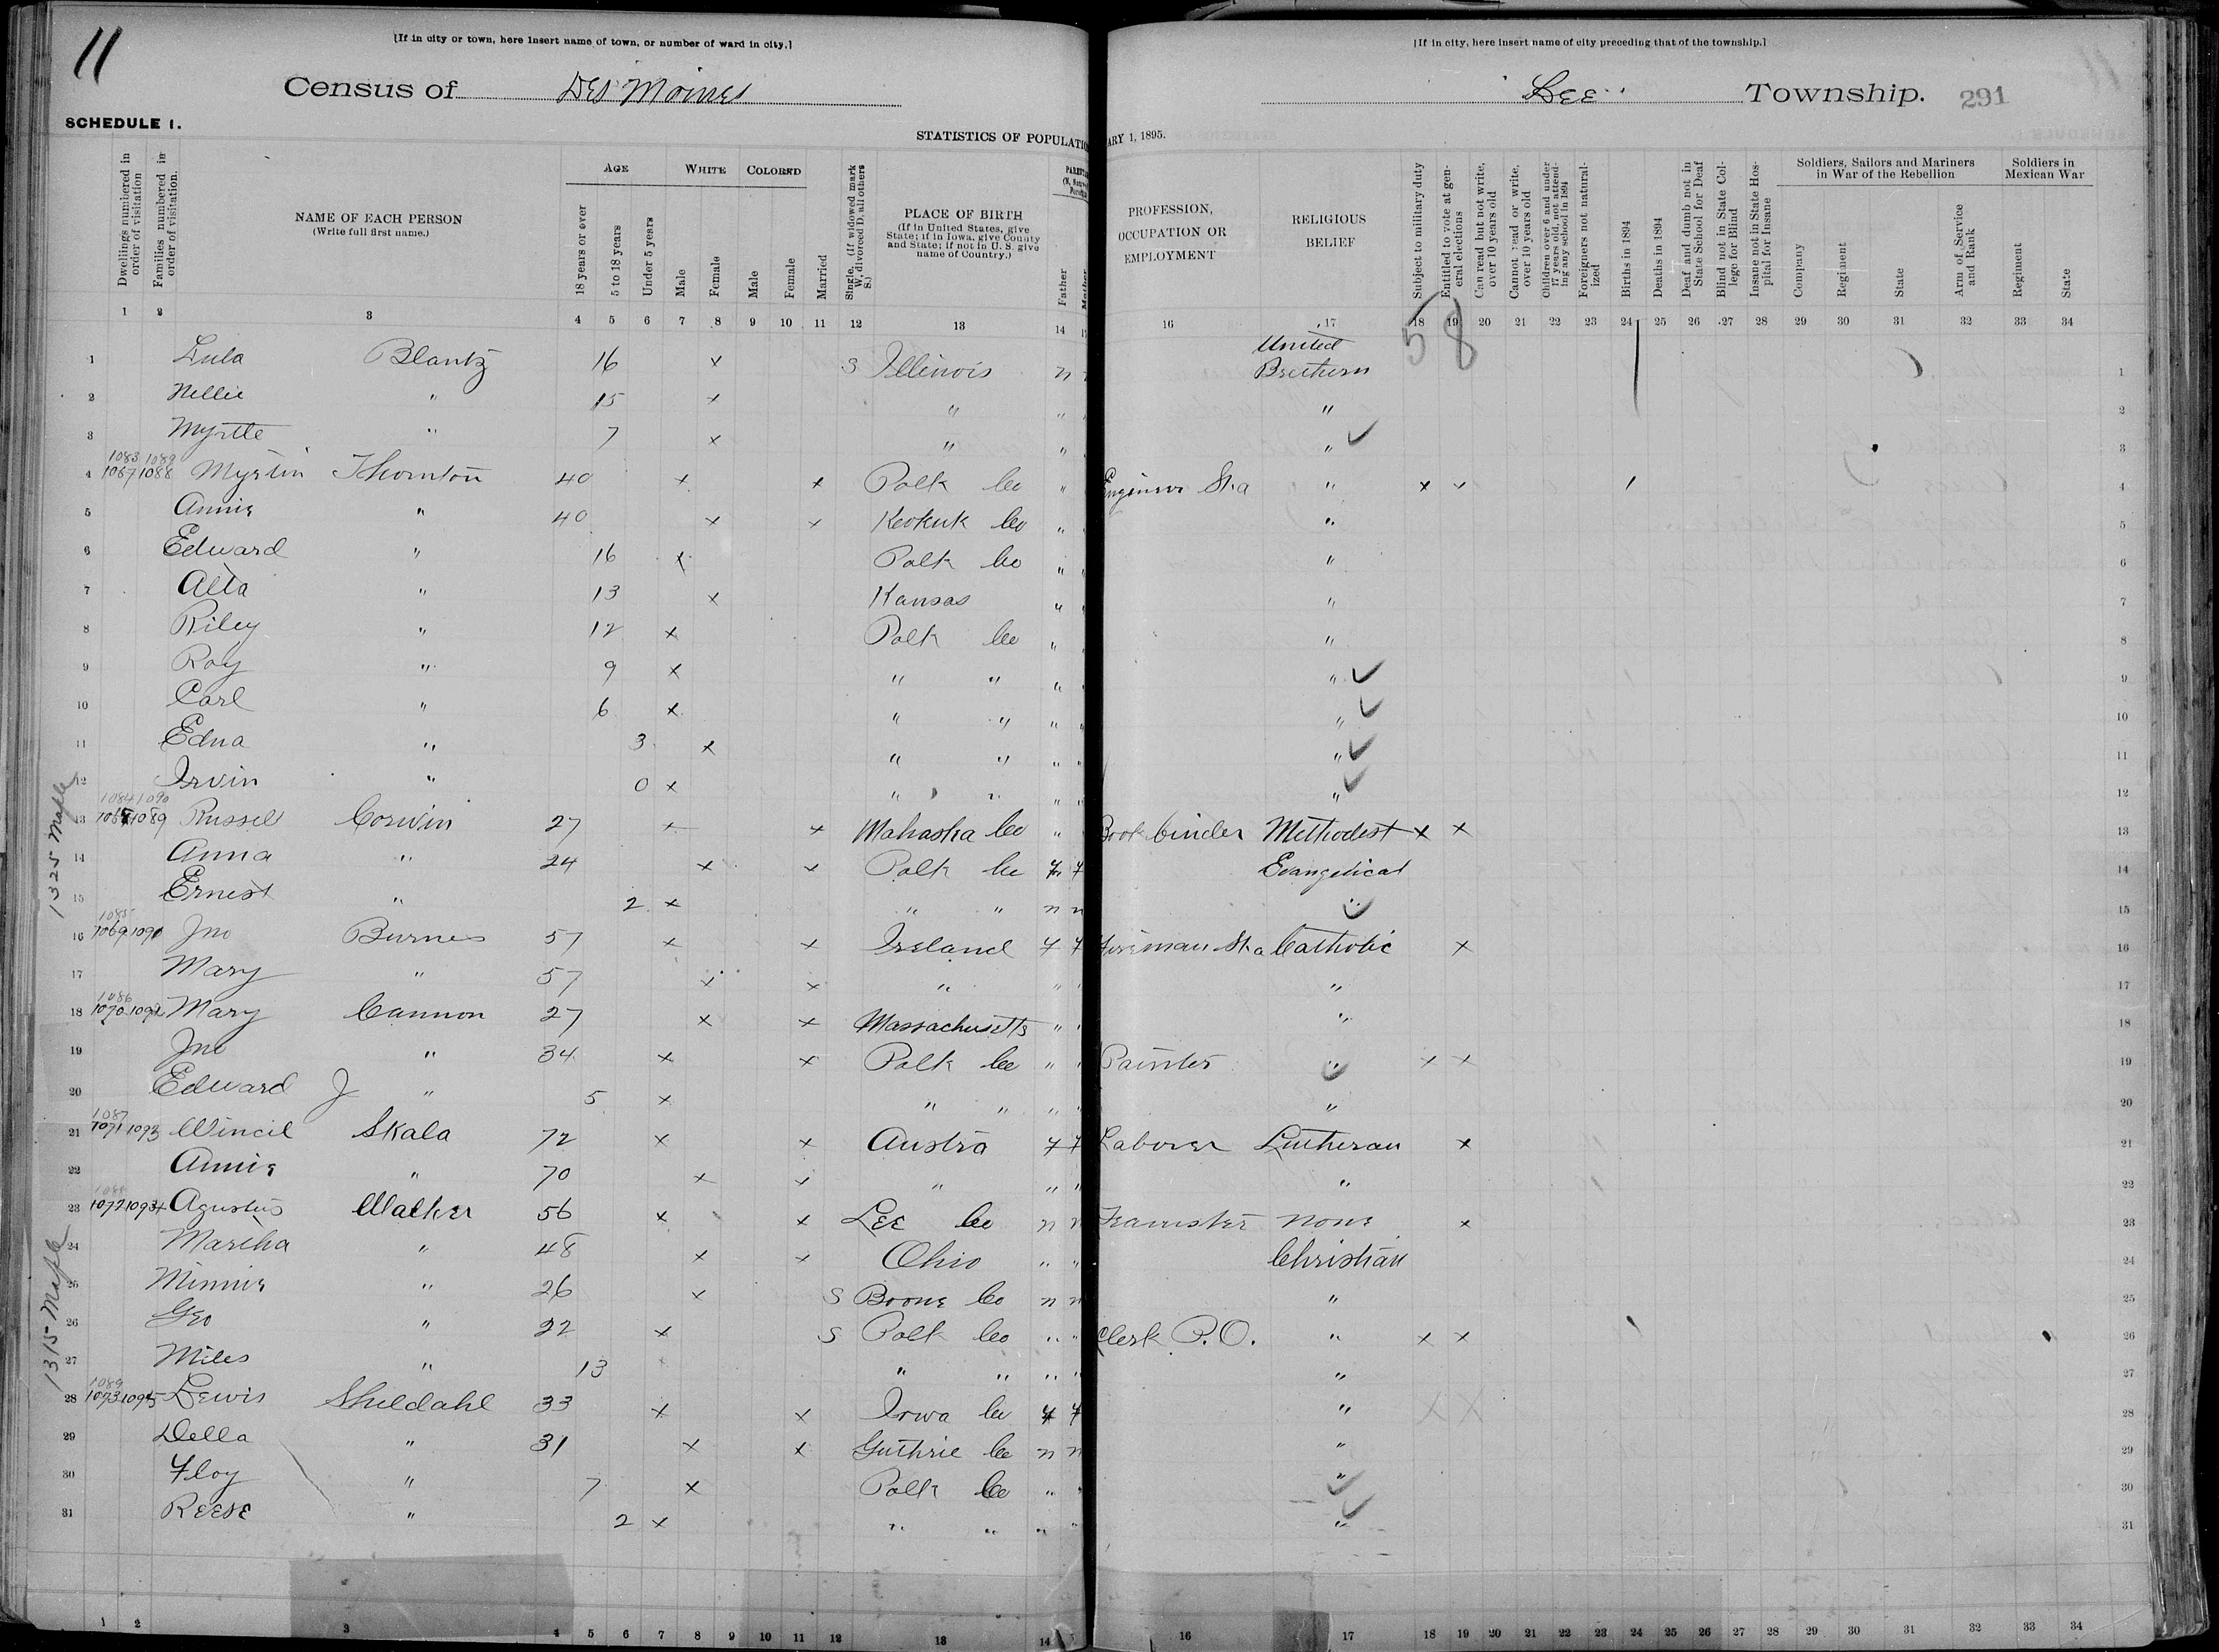 11
[If in city or town, here insert name of town, or number of ward in city.]
Census of Des Moines
SCHEDULE 1.
STATISTICS OF POPULATIO
Dwellings numbered in order of visitation
Families numbered in order of visitation.
NAME OF EACH PERSON (Write full first name.)
AGE
18 years or over
5 to 18 years
Under 5 years
WHITE
Male
Female
COLORED
Male
Female
Married
Single, (If widowed mark W, divorced D, all others S.)
PLACE OF BIRTH (If in United States, give State; if in Iowa, give County and State; if not in U. S. give name of Country.)
Father
1 2 3 4 5 6 7 8 9 10 11 12 13 14
[If in city, here insert name of city preceding that of the township.]
Lee Township. 291
ARY 1, 1895.
PROFESSION, OCCUPATION OR EMPLOYMENT
RELIGIOUS BELIEF
Subject to military duty
Entitled to vote at general elections
Can read but not write, over 10 years old
Cannot read or write, over 10 years old
Children over 6 and under 17 years old, not attending any school in 1894
Foreigners not naturalized
Births in 1894
Deaths in 1894
Deaf and dumb not in State School for Deaf
Blind not in State College for Blind
Insane not in State Hospital for Insane
Soldiers, Sailors and Mariners in War of the Rebellion
Company
Regiment
State
Arm of Service and Rank
Soldiers in Mexican War
Regiment
State
16 17 18 19 20 21 22 23 24 25 26 27 28 29 30 31 32 33 34
58
1 Lula Blantz 16 x S Illinois n United Brethern 1
2 Nellie " 15 x " " " 2
3 Myrtle " 7 x " " " 3
1083 1089
4 1067 1088 Myrtin Thornton 40 x x Polk Co " Engineer Sta " x x 1 4
5 Annie " 40 x x Keokuk Co " " 5
6 Edward " 16 x Polk Co " " 6
7 Alta " 13 x Kansas " " 7
8 Riley " 12 x Polk Co " " 8
9 Roy " 9 x " " " " 9
10 Carl " 6 x " " " " 10
11 Edna " 3 x " " " " 11
12 Irvin " 0 x " " " " 12
1325 Maple
1084 1090
13 1068 1089 Russell Corwin 27 x x Mahaska Co " Book binder Methodest x x 13
14 Anna " 24 x x Polk Co Evangelical 14
15 Ernest " 2 x " " n n " 15
1085
16 1069 1090 Jno Burnes 57 x x Ireland Fireman Sta Catholic x 16
17 Mary " 57 x x " " " 17
1086
18 1070 Mary Cannon 27 x x Massachusetts " " 18
19 Jno " 34 x x Polk Co " Painter " x x 19
20 Edward J " 5 x " " " " 20
1087
21 1071 1093 Wincil Skala 72 x x Austra Laborer Lutheran x 21
22 Annie " 70 x x " " " " 22
23 1072 1094 Agustus Walker 56 x x Lee Co n n Teamster none x 23
24 Martha " 48 x x Ohio " " Christian 24
1315 Maple
25 Minnie " 26 x S Boone Co n n " 25
26 Geo " 22 x S Polk Co " " Clerk P.O. " x x 26
27 Miles " 13 " " " " " 27
1089
28 1073 1095 Lewis Sheldahl 33 x x Iowa Co " X X 28
29 Della " 31 x x Guthrie Co n n " 29
30 Floy " 7 x Polk Co " " " 30
31 Reese " 2 x " " " " " 31
1 2 3 4 5 6 7 8 9 10 11 12 13 14
16 17 18 19 20 21 22 23 24 25 26 27 28 29 30 31 32 33 34